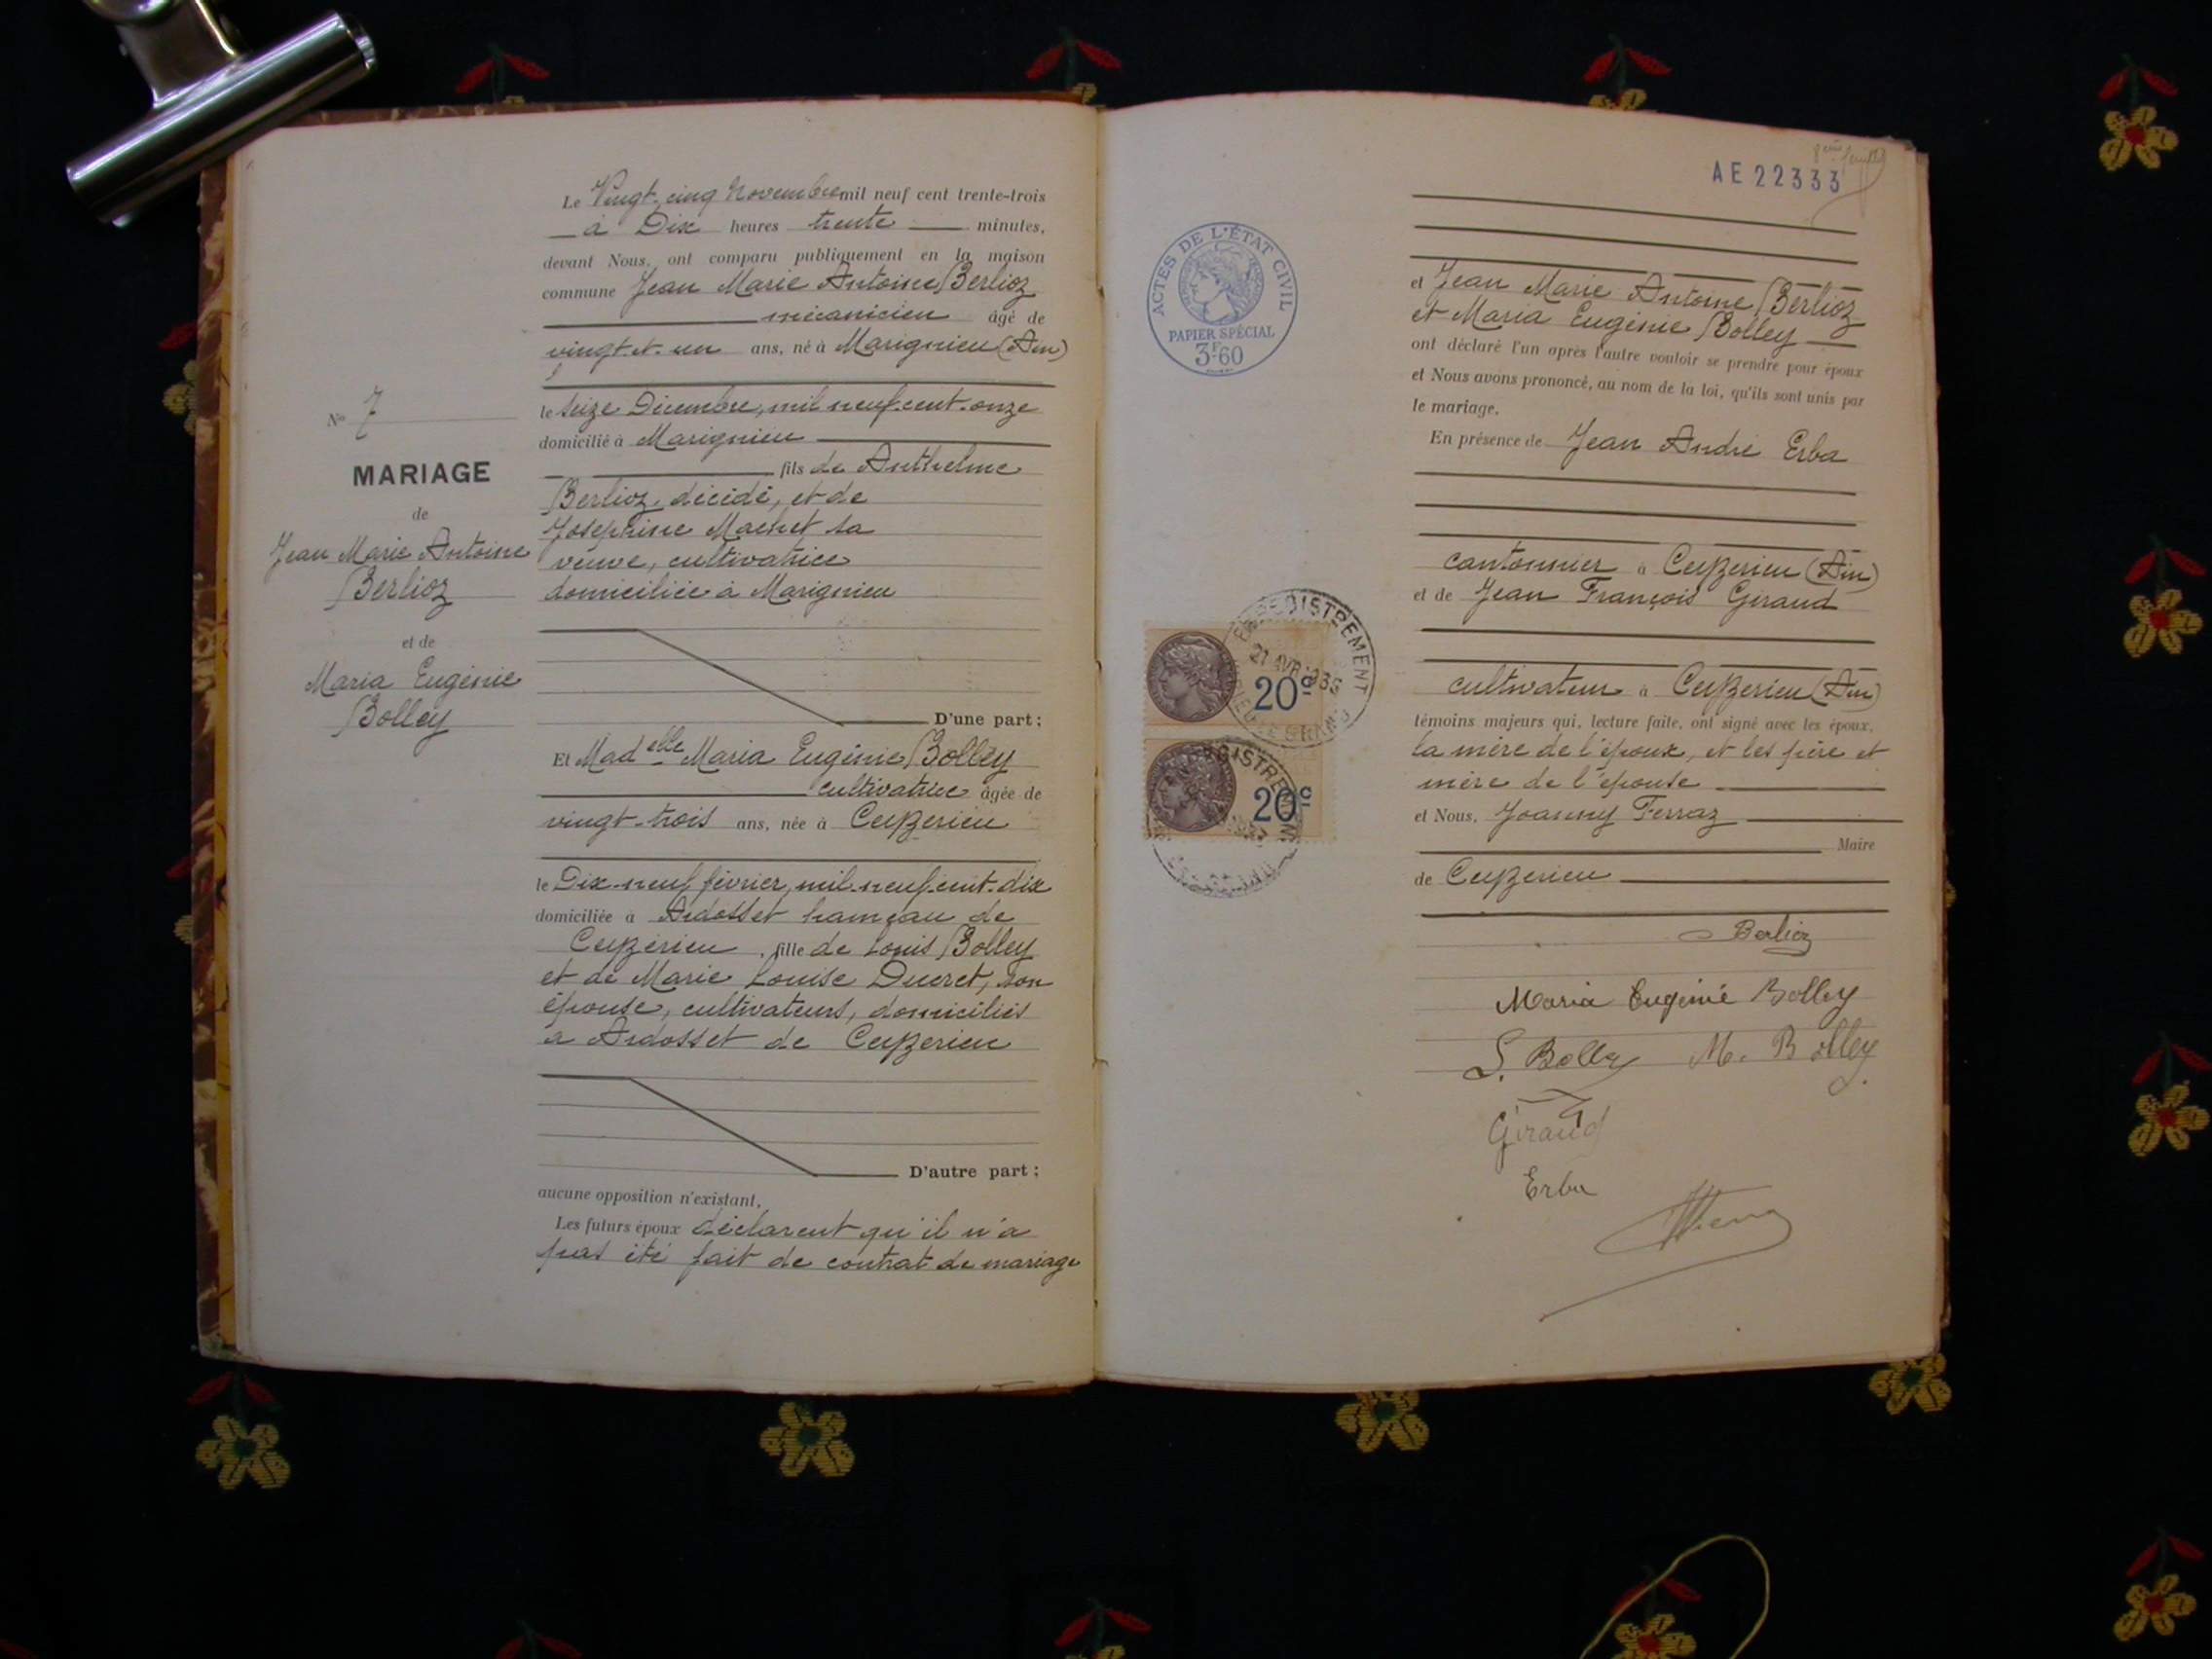 Le Vingt-cinq Novembre mil neuf cent trente-trois
à Dix heures trente minutes,
devant Nous, ont comparu publiquement en la maison
commune Jean Marie Antoine Berlioz
mécanicien âgé de
vingt-et-un ans, né à Marignieu (Ain)
le seize Décembre, mil neuf cent onze
domicilié à Marignieu
fils de Anthelme
Berlioz, décédé, et de
Joséphine Machet sa
veuve, cultivatrice
domiciliée à Marignieu
D'une part ;
Et Madelle Maria Eugénie Bolley
cultivatrice âgée de
vingt-trois ans, née à Ceyzerieu
le Dix-neuf février, mil neuf cent dix
domiciliée à Ardosset hameau de
Ceyzérieu, fille de Louis Bolley
et de Marie Louise Ducret, son
épouse, cultivateurs, domiciliés
à Ardosset de Ceyzerieu
D'autre part ;
aucune opposition n'existant,
Les futurs époux déclarent qu'il n'a
pas été fait de contrat de mariage
No 7
MARIAGE
de
Jean Marie Antoine
Berlioz
et de
Maria Eugénie
Bolley
AE 22333
ACTES DE L'ÉTAT CIVIL
PAPIER SPÉCIAL
3F.60
ENREGISTREMENT
20c
20c
et Jean Marie Antoine Berlioz
et Maria Eugénie Bolley
ont déclaré l'un après l'autre vouloir se prendre pour époux
et Nous avons prononcé, au nom de la loi, qu'ils sont unis par
le mariage.
En présence de Jean André Erba
cantonnier à Ceyzerieu (Ain)
et de Jean François Giraud
cultivateur à Ceyzerieu (Ain)
témoins majeurs qui, lecture faite, ont signé avec les époux,
la mère de l'époux, et les père et
mère de l'épouse
et Nous, Joanny Ferraz
Maire
de Ceyzerieu
Berlioz
Maria Eugénie Bolley
L. Bolley M. Bolley
Giraud
Erba